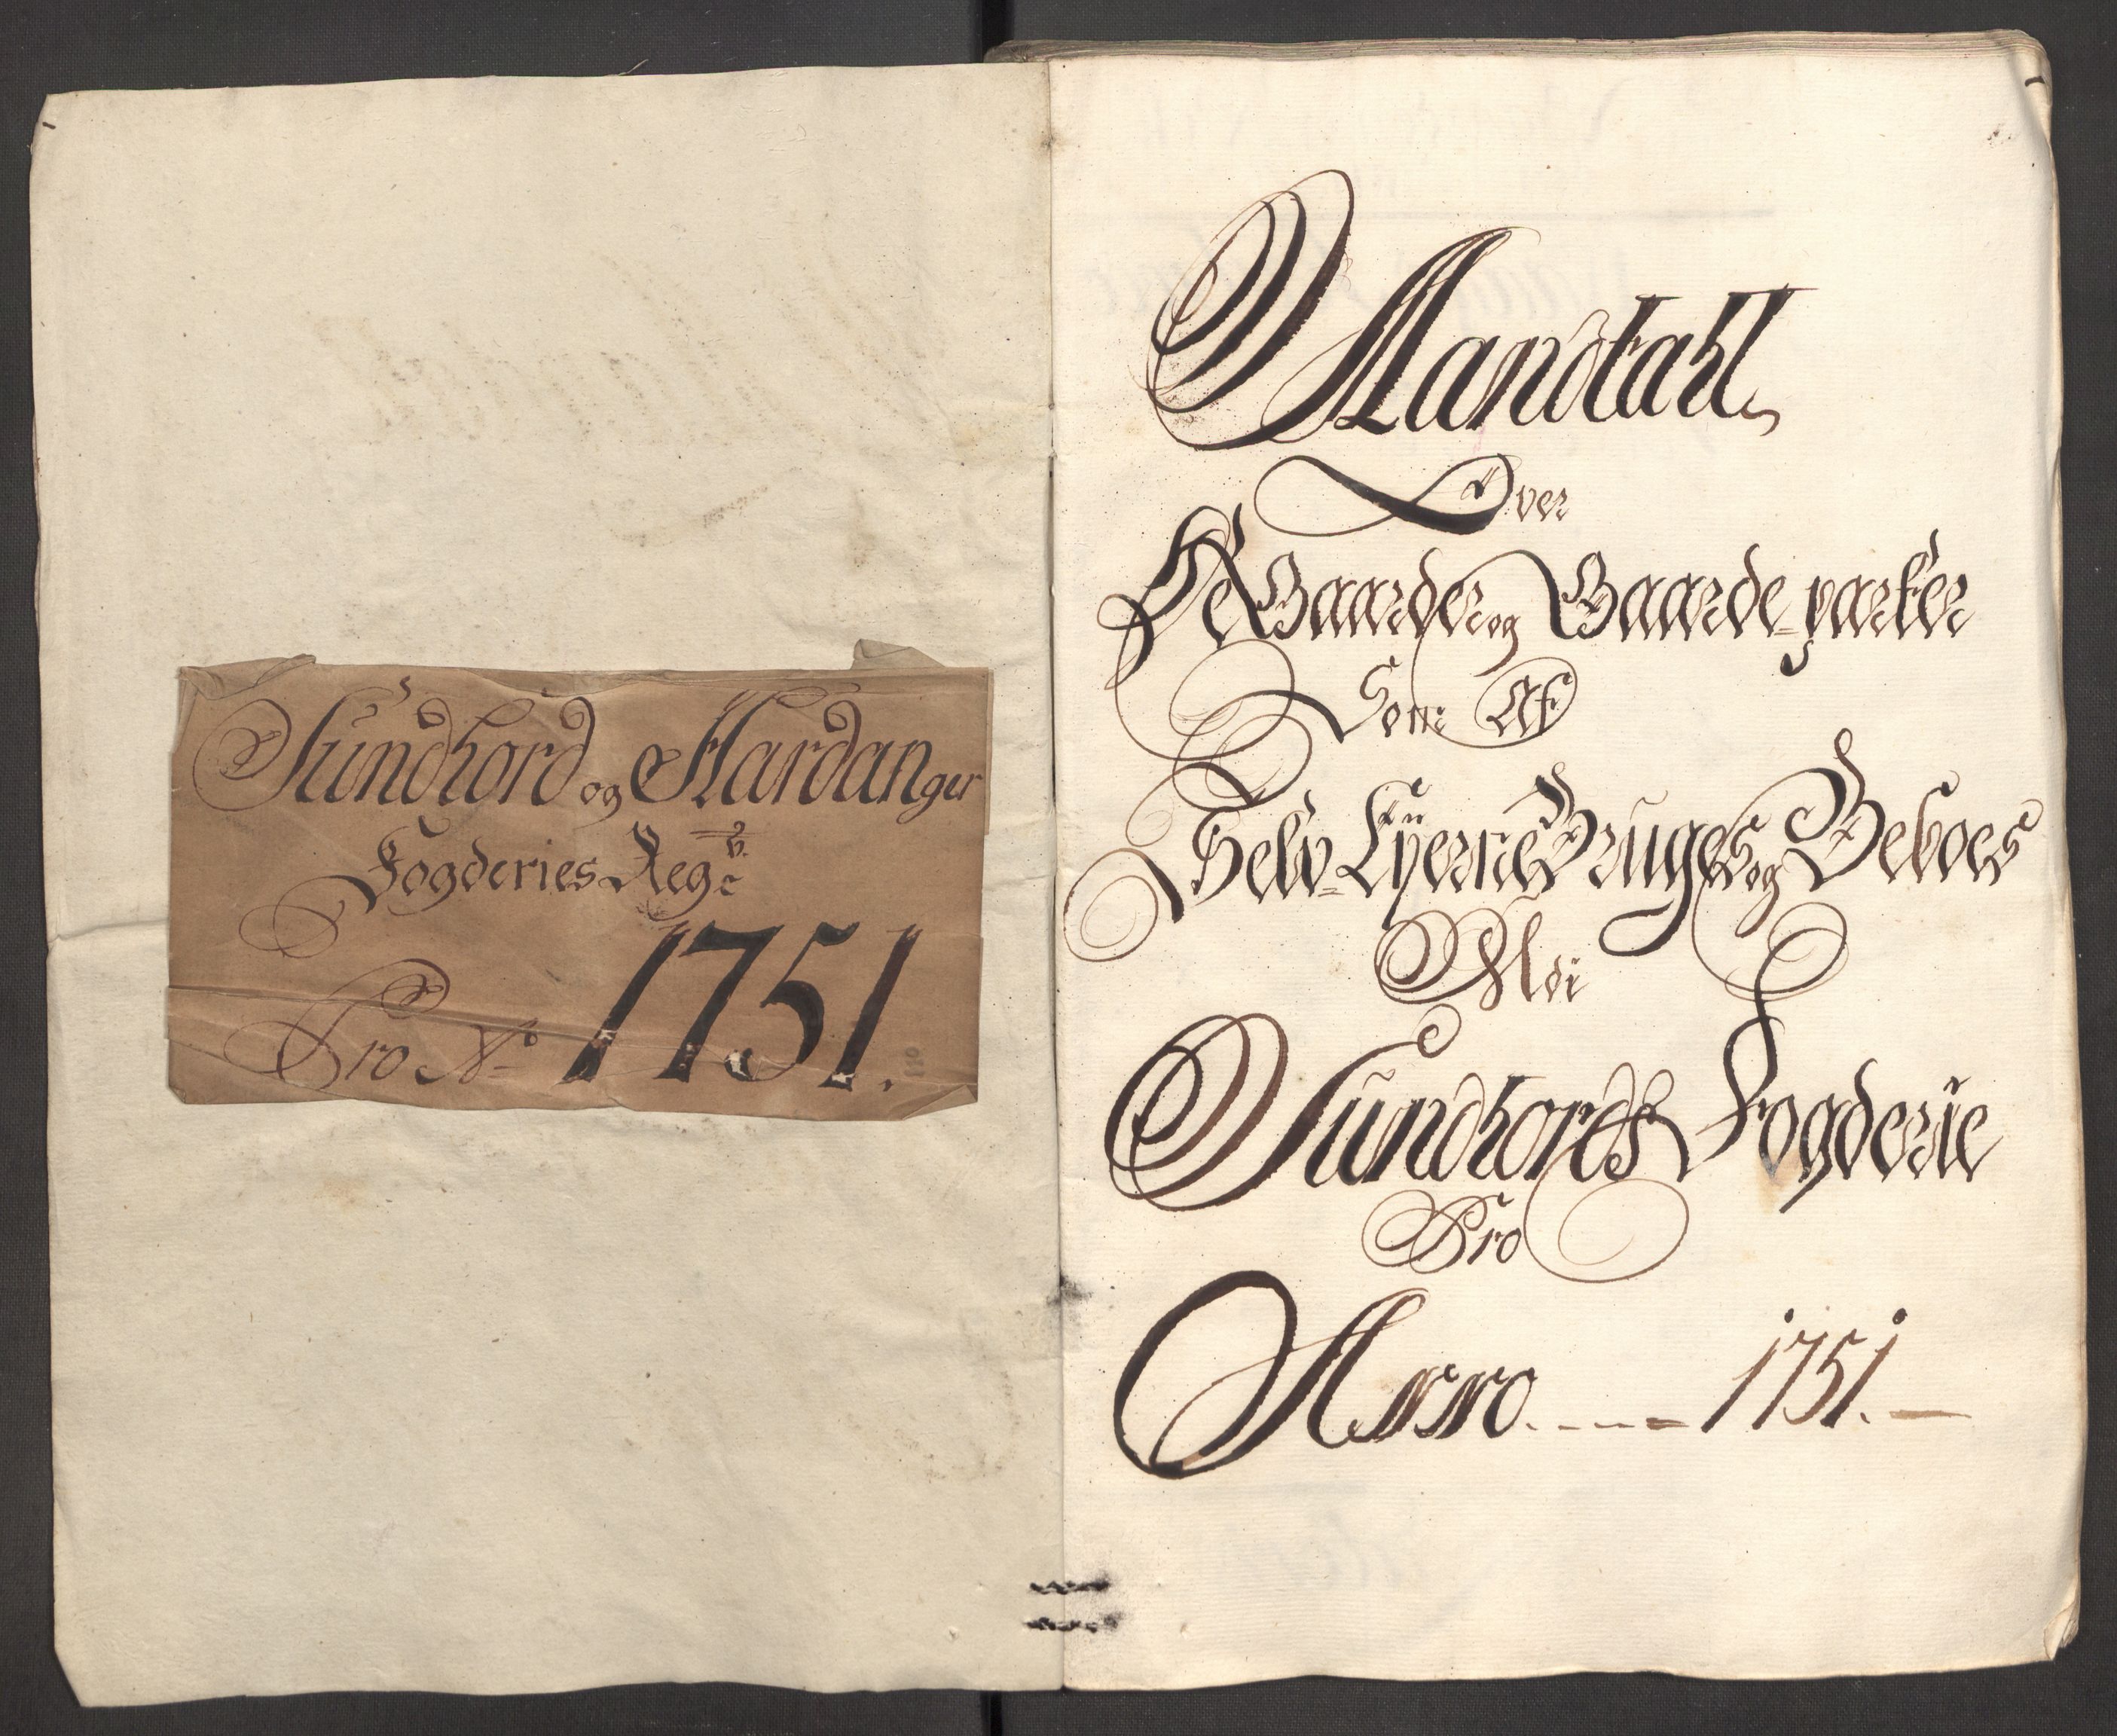 Sundhord og Hardanger
Fogderies Reg
Pro Ao 1751.
Mandtahl
Over
De Gaarder og Gaarde-parter
Som Af
Selv-Eyerne Bruges og Beboes
Udi
Sundhords Fogderie
Pro
Anno ---- 1751. —